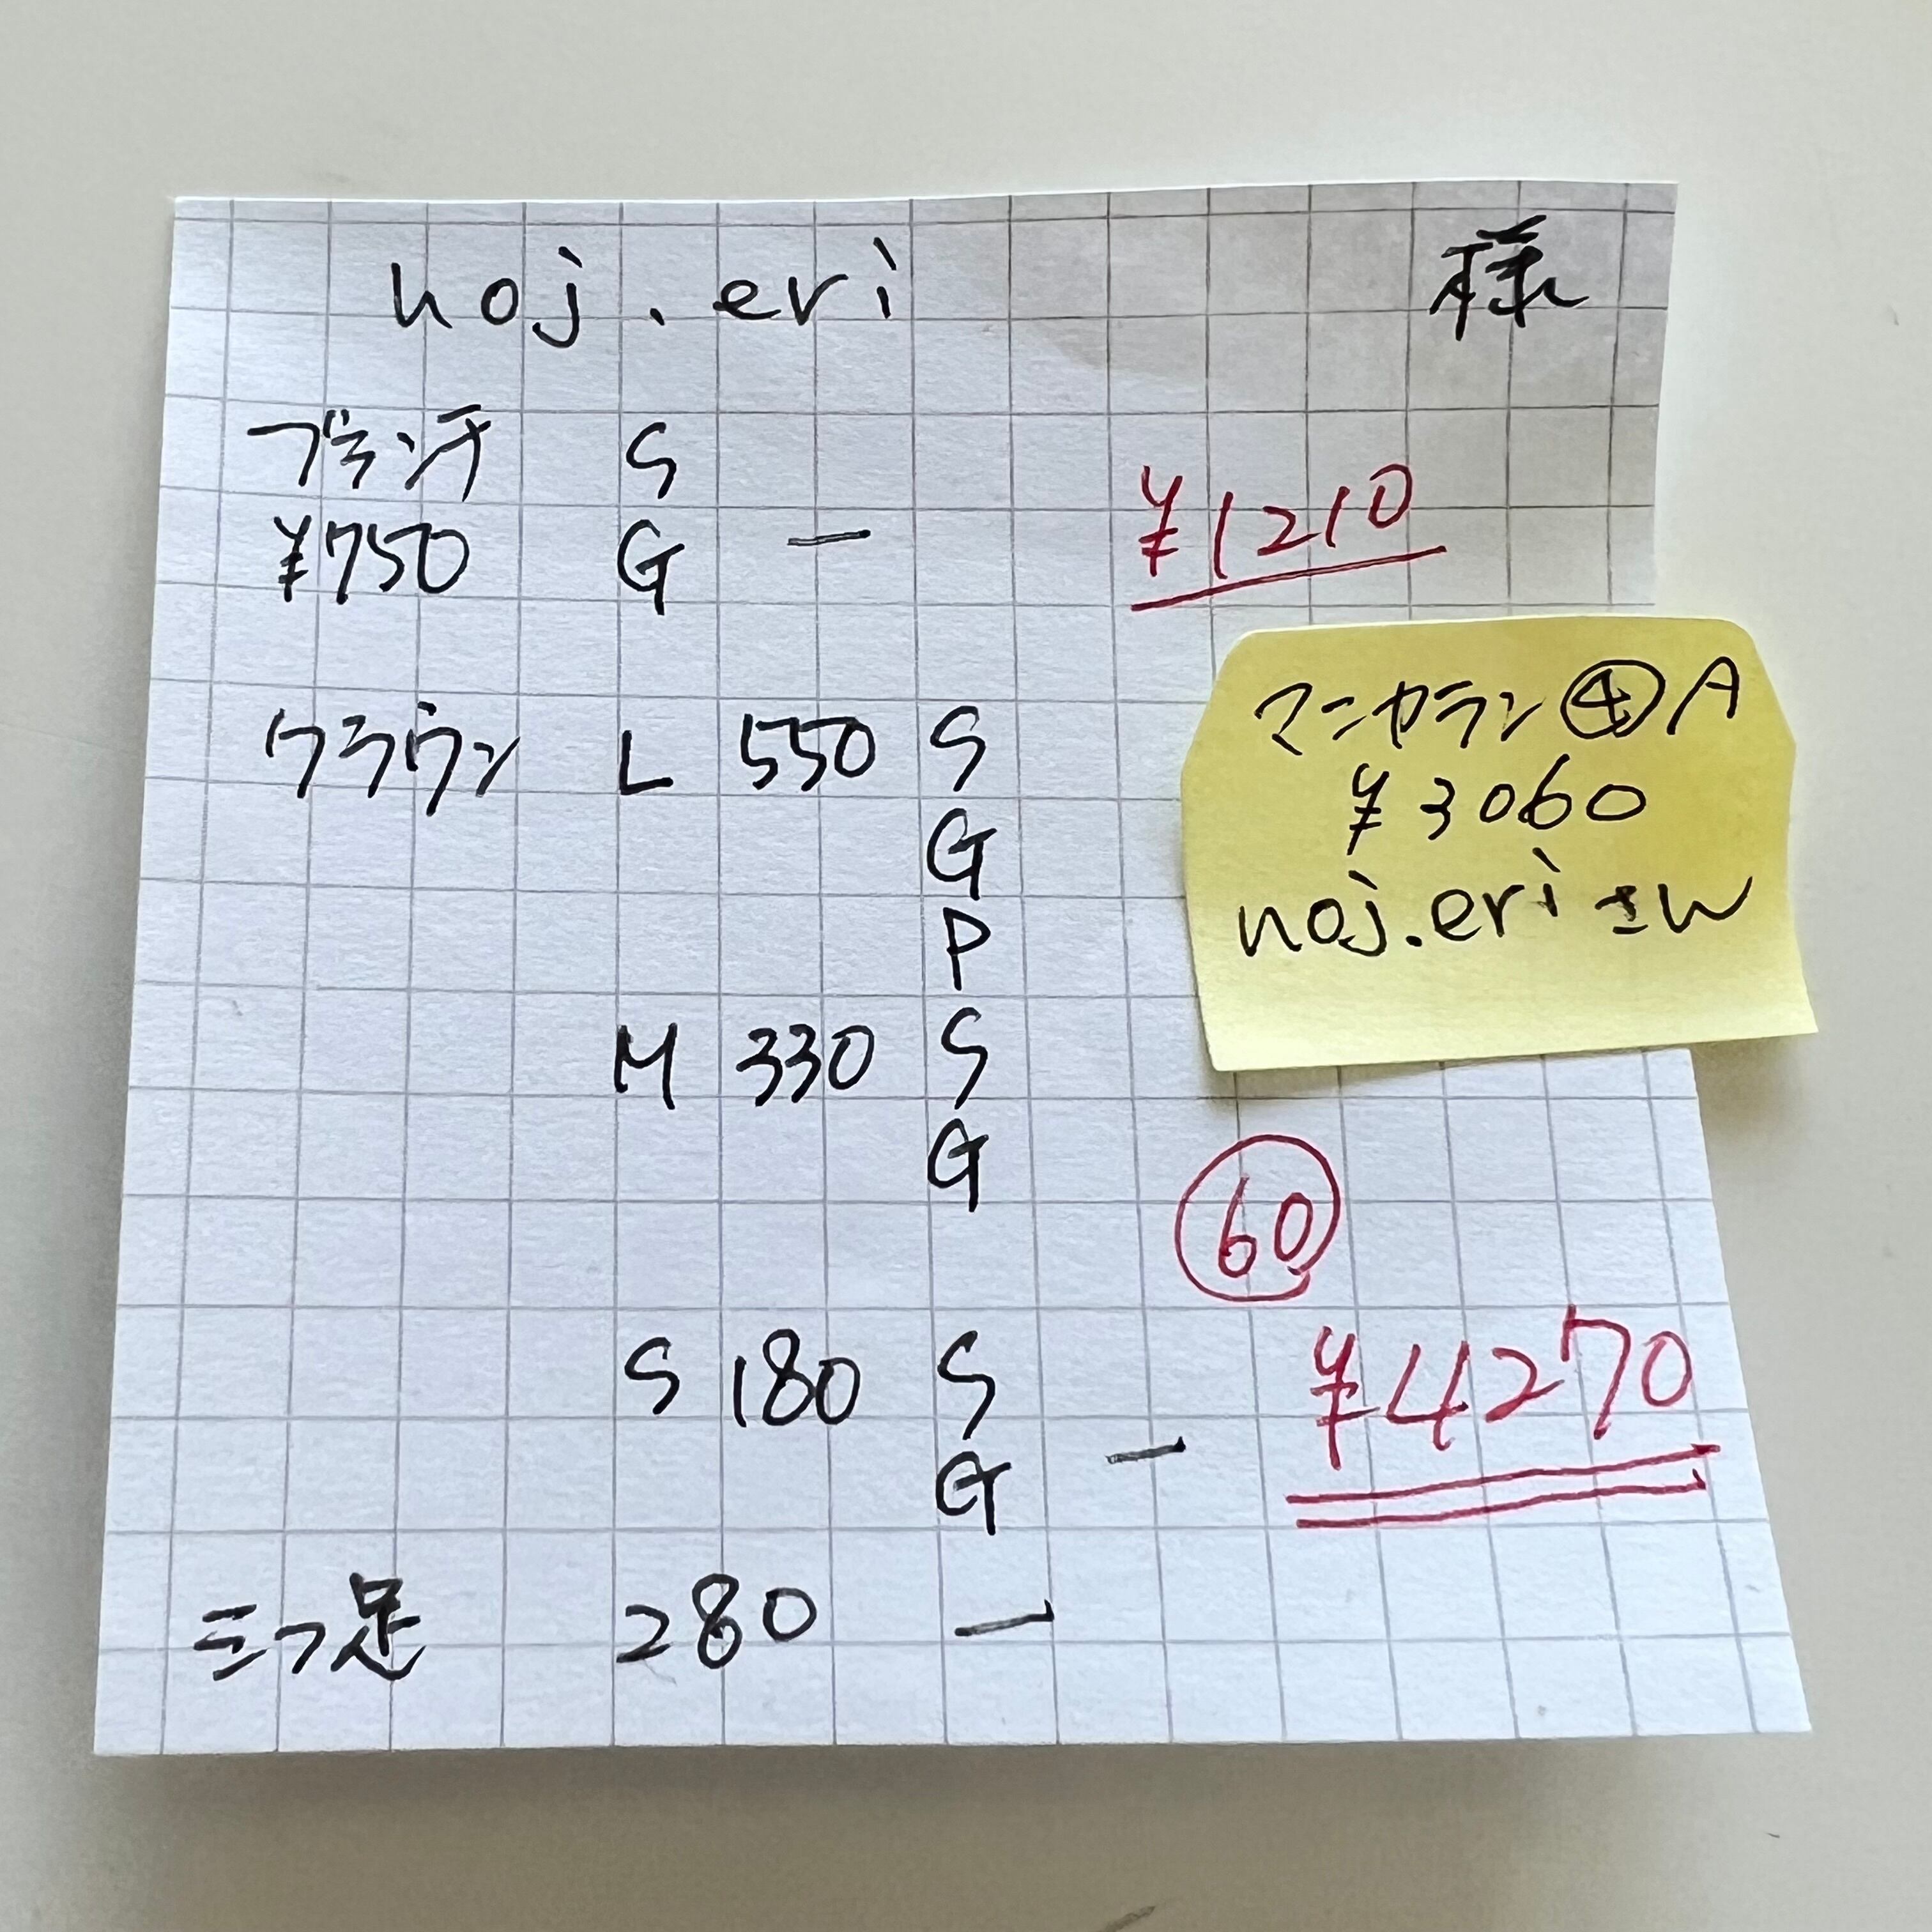 noj.eri 様
ブランチ S
¥750 G ー
¥1210
クラウン L 550 S
G
P
M 330 S
G
S 180 S
G ー
三つ足 280 ー
マニカラン④A
¥3060
noj.eriさん
60
¥4270